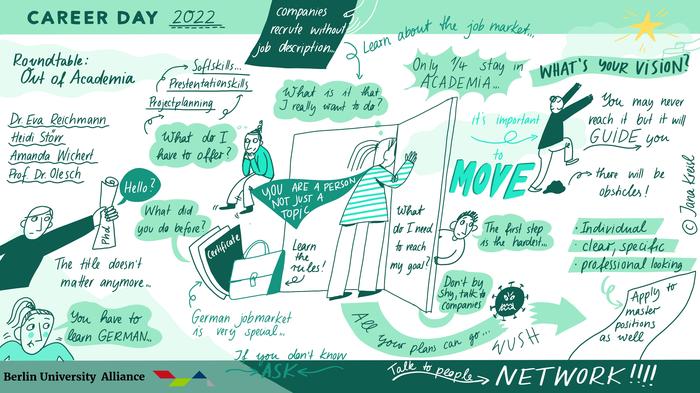 CAREER DAY 2022
companies
recrute without
job description...
Learn about the job market...
Roundtable:
Out of Academia
Softskills...
Prestentationskills
Projectplanning
Dr. Eva Reichmann
Heidi Störr
Amanda Wichert
Prof. Dr. Olesch
What do I
have to offer?
What is it that
I really want to do?
Only 1/4 stay in
ACADEMIA...
WHAT'S YOUR VISION?
it's important
to
MOVE
You may never
reach it but it will
GUIDE you
there will be
obsticles!
Hello?
Phd
What did
you do before?
The title doesn't
matter anymore...
You have to
learn GERMAN...
Certificate
YOU ARE A PERSON
NOT JUST A
TOPIC
Learn
the
rules!
German jobmarket
is very special...
What
do I need
to reach
my goal?
The first step
is the hardest...
Don't by
shy, talk to
companies
All your plans can go...
WUSH
· Individual
· clear, specific
· professional looking
Apply to
master
positions
as well
© Jana Kreul
If you don't know
ASK
Talk to people
NETWORK!!!!
Berlin University Alliance